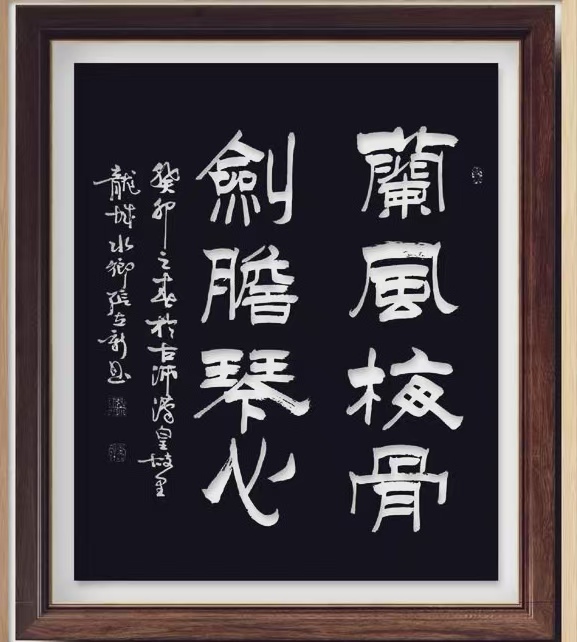 蘭風梅骨
劍膽琴心
癸卯之春於古沛漢皇故里
龍城水鄉張立新